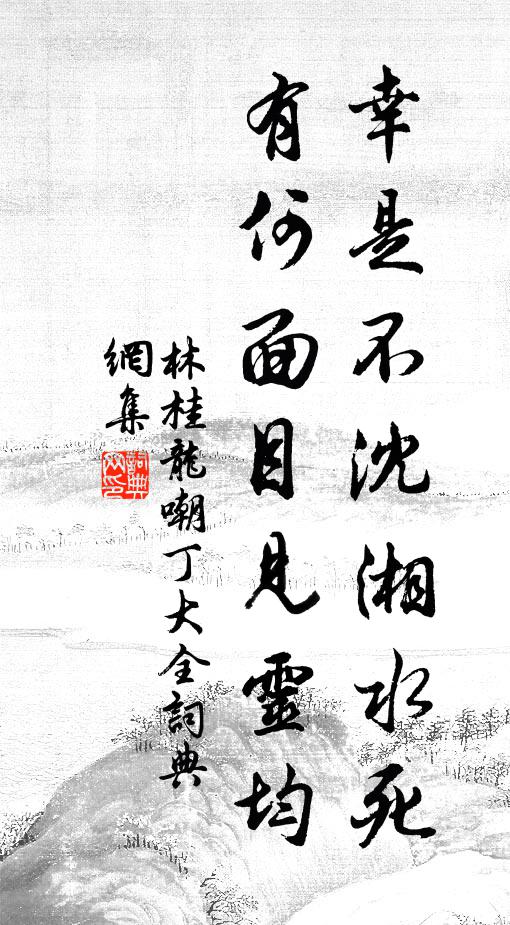 幸是不沈湘水死
有何面目見靈均
林桂龍嘲丁大全詞典
網集
詞典網印